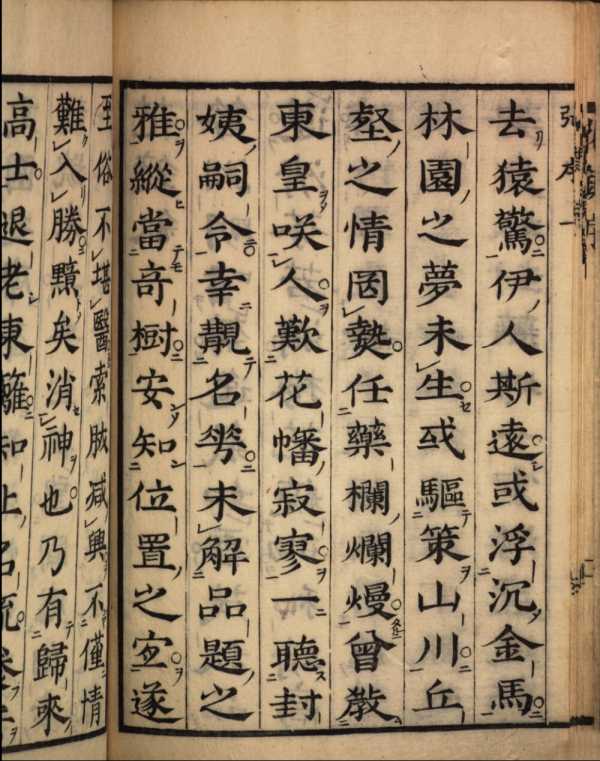 序一
去猿驚伊人斯遠或浮沉金馬
林園之夢未生或驅策山川丘
壑之情罔任藥欄爛熳曾教
東皇咲人歎花幡寂寥一聽封
姨嗣令幸覯名華未解品題之
雅縱當奇樹安知位置之宜遂
至俗不堪醫索减興不僅情
難入勝黯矣消神也乃有歸來
高士退老東籬知止名流